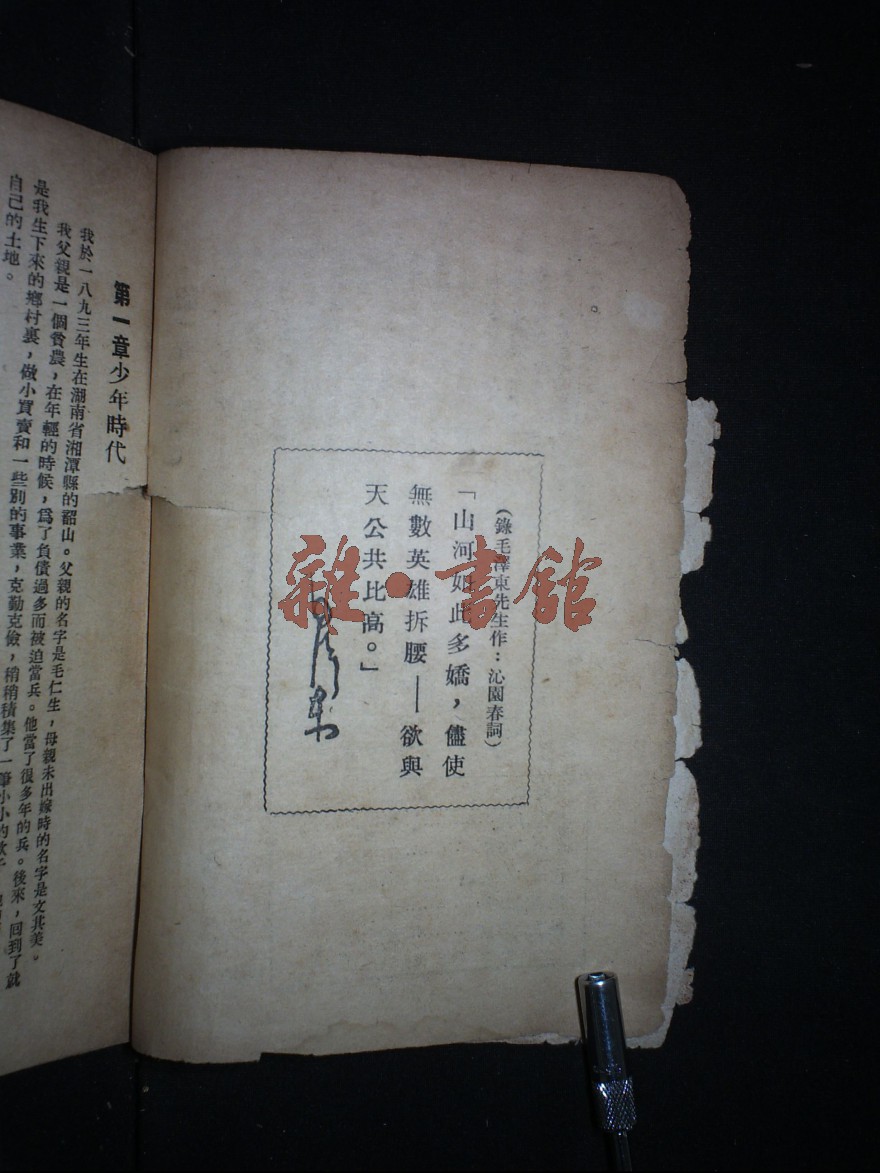 (錄毛澤東先生作：沁園春詞)
「山河如此多嬌，儘使
無數英雄拆腰——欲與
天公共比高。」
毛澤東
雜·書館
第一章少年時代
我於一八九三年生在湖南省湘潭縣的韶山。父親的名字是毛仁生，母親未出嫁時的名字是文其美。
我父親是一個貧農，在年輕的時候，爲了負債過多而被迫當兵。他當了很多年的兵。後來，回到了就
是我生下來的鄉村裏，做小買賣和一些別的事業，克勤克儉，稍稍積集了一筆小小的款子
自己的土地。